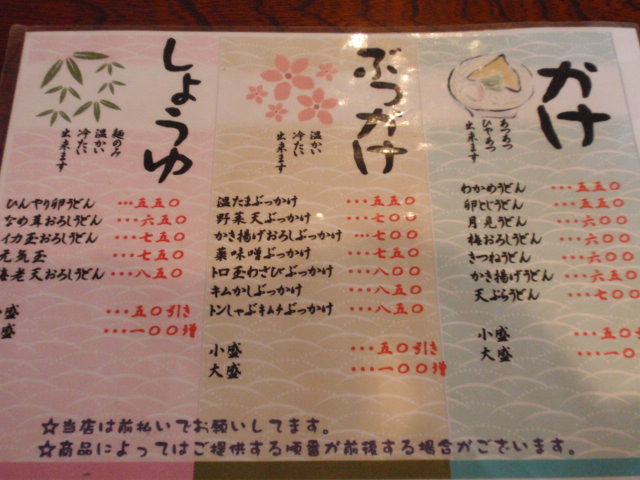 かけ
あつあつ
ひやあつ
出来ます
わかめうどん …五五〇
卵とじうどん …五五〇
月見うどん …六〇〇
梅おろしうどん …六〇〇
きつねうどん …六〇〇
かき揚げうどん …六五〇
天ぷらうどん …七〇〇
小盛 …五〇引
大盛 …一〇〇
ぶっかけ
温かい
冷たい
出来ます
温たまぶっかけ …五五〇
野菜天ぶっかけ …七〇〇
かき揚げおろしぶっかけ …七五〇
薬味噌ぶっかけ …七五〇
トロ玉わさびぶっかけ …八〇〇
キムかしぶっかけ …八〇〇
トンしゃぶキムチぶっかけ …八五〇
小盛 …五〇引き
大盛 …一〇〇増
しょうゆ
麺のみ
温かい
冷たい
出来ます
ひんやり卵うどん …五五〇
なめ茸おろしうどん …六五〇
イカ玉おろしうどん …七五〇
元気玉 …七五〇
海老天おろしうどん …八五〇
小盛 …五〇引き
盛 …一〇〇増
☆当店は前払いでお願いしてます。
☆商品によってはご提供する順番が前後する場合がございます。